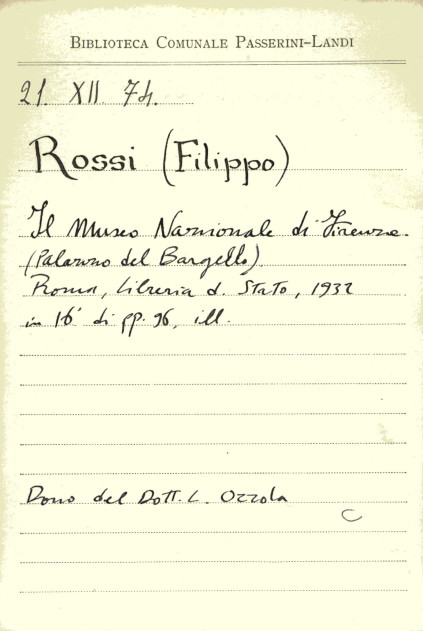 BIBLIOTECA COMUNALE PASSERINI-LANDI
21. XII 74.
Rossi (Filippo)
Il Museo Nazionale di Firenze.
(Palazzo del Bargello)
Roma, Libreria d. Stato, 1932
in 16° di pp. 96, ill.
Dono del Dott. L. Ozzola
C